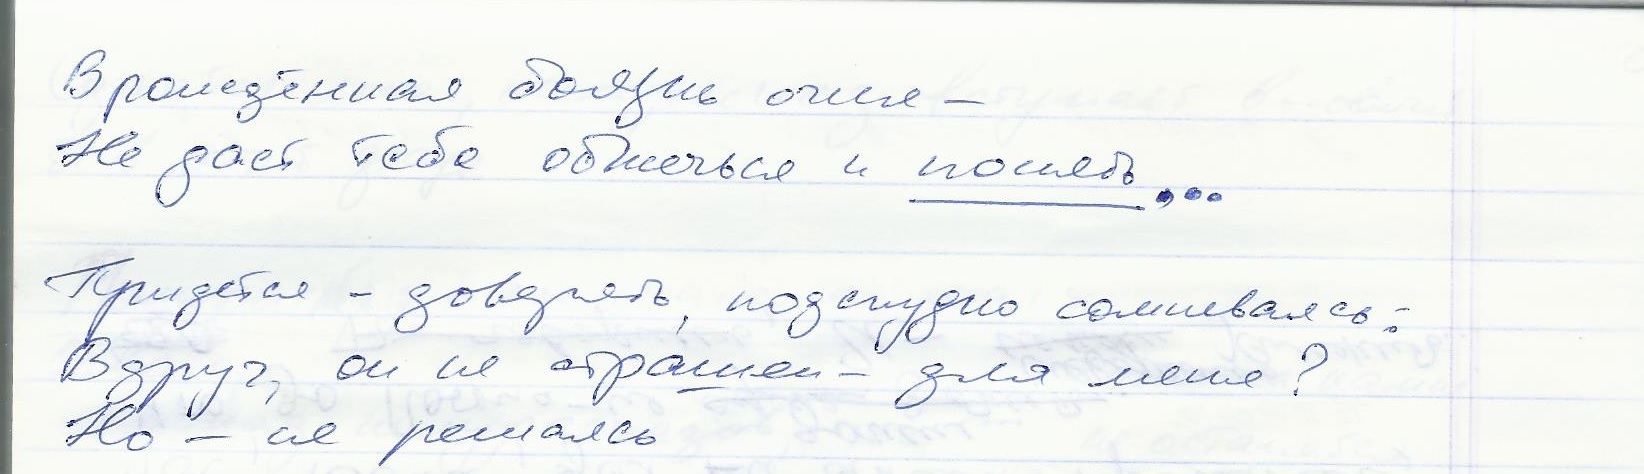 Врождённая боязнь огня –
Не даст тебе обжечься и понять,...
Придётся – доверять, подспудно сомневаясь:
Вдруг, он не страшен – для меня?
Но – не решаясь